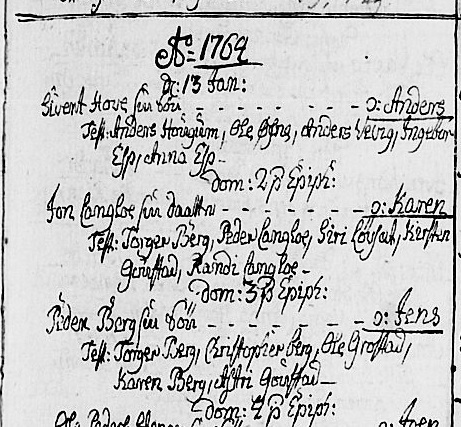 Ao 1764
d: 13 Jan:
Sivert Hove sin Sön - - - - - - - o: Anders
Test: Anders Hougum, Ole Øfns, Anders Velvig, Ingebor
Esp, Anna Esp -
Dom: 2 p Epiph:
Jon Langloe sin daatter - - - - - - o: Karen
Test: Torger Berg, Peder Langloe, Siri Löyset, Kirsten
Goustad, Randi Langloe -
Dom: 3 p Epiph:
Peder Berg sin Sön - - - - - - - o: Jens
Test: Torger Berg, Christopher berg, Ole Grostad,
Karen Berg, Astri Goustad -
Dom: 4 p Epiph: